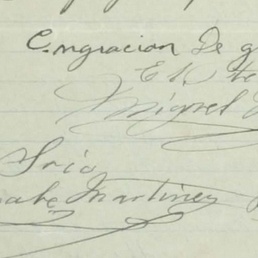 Engracion De g
El te
Miguel
Srio
abe Martinez